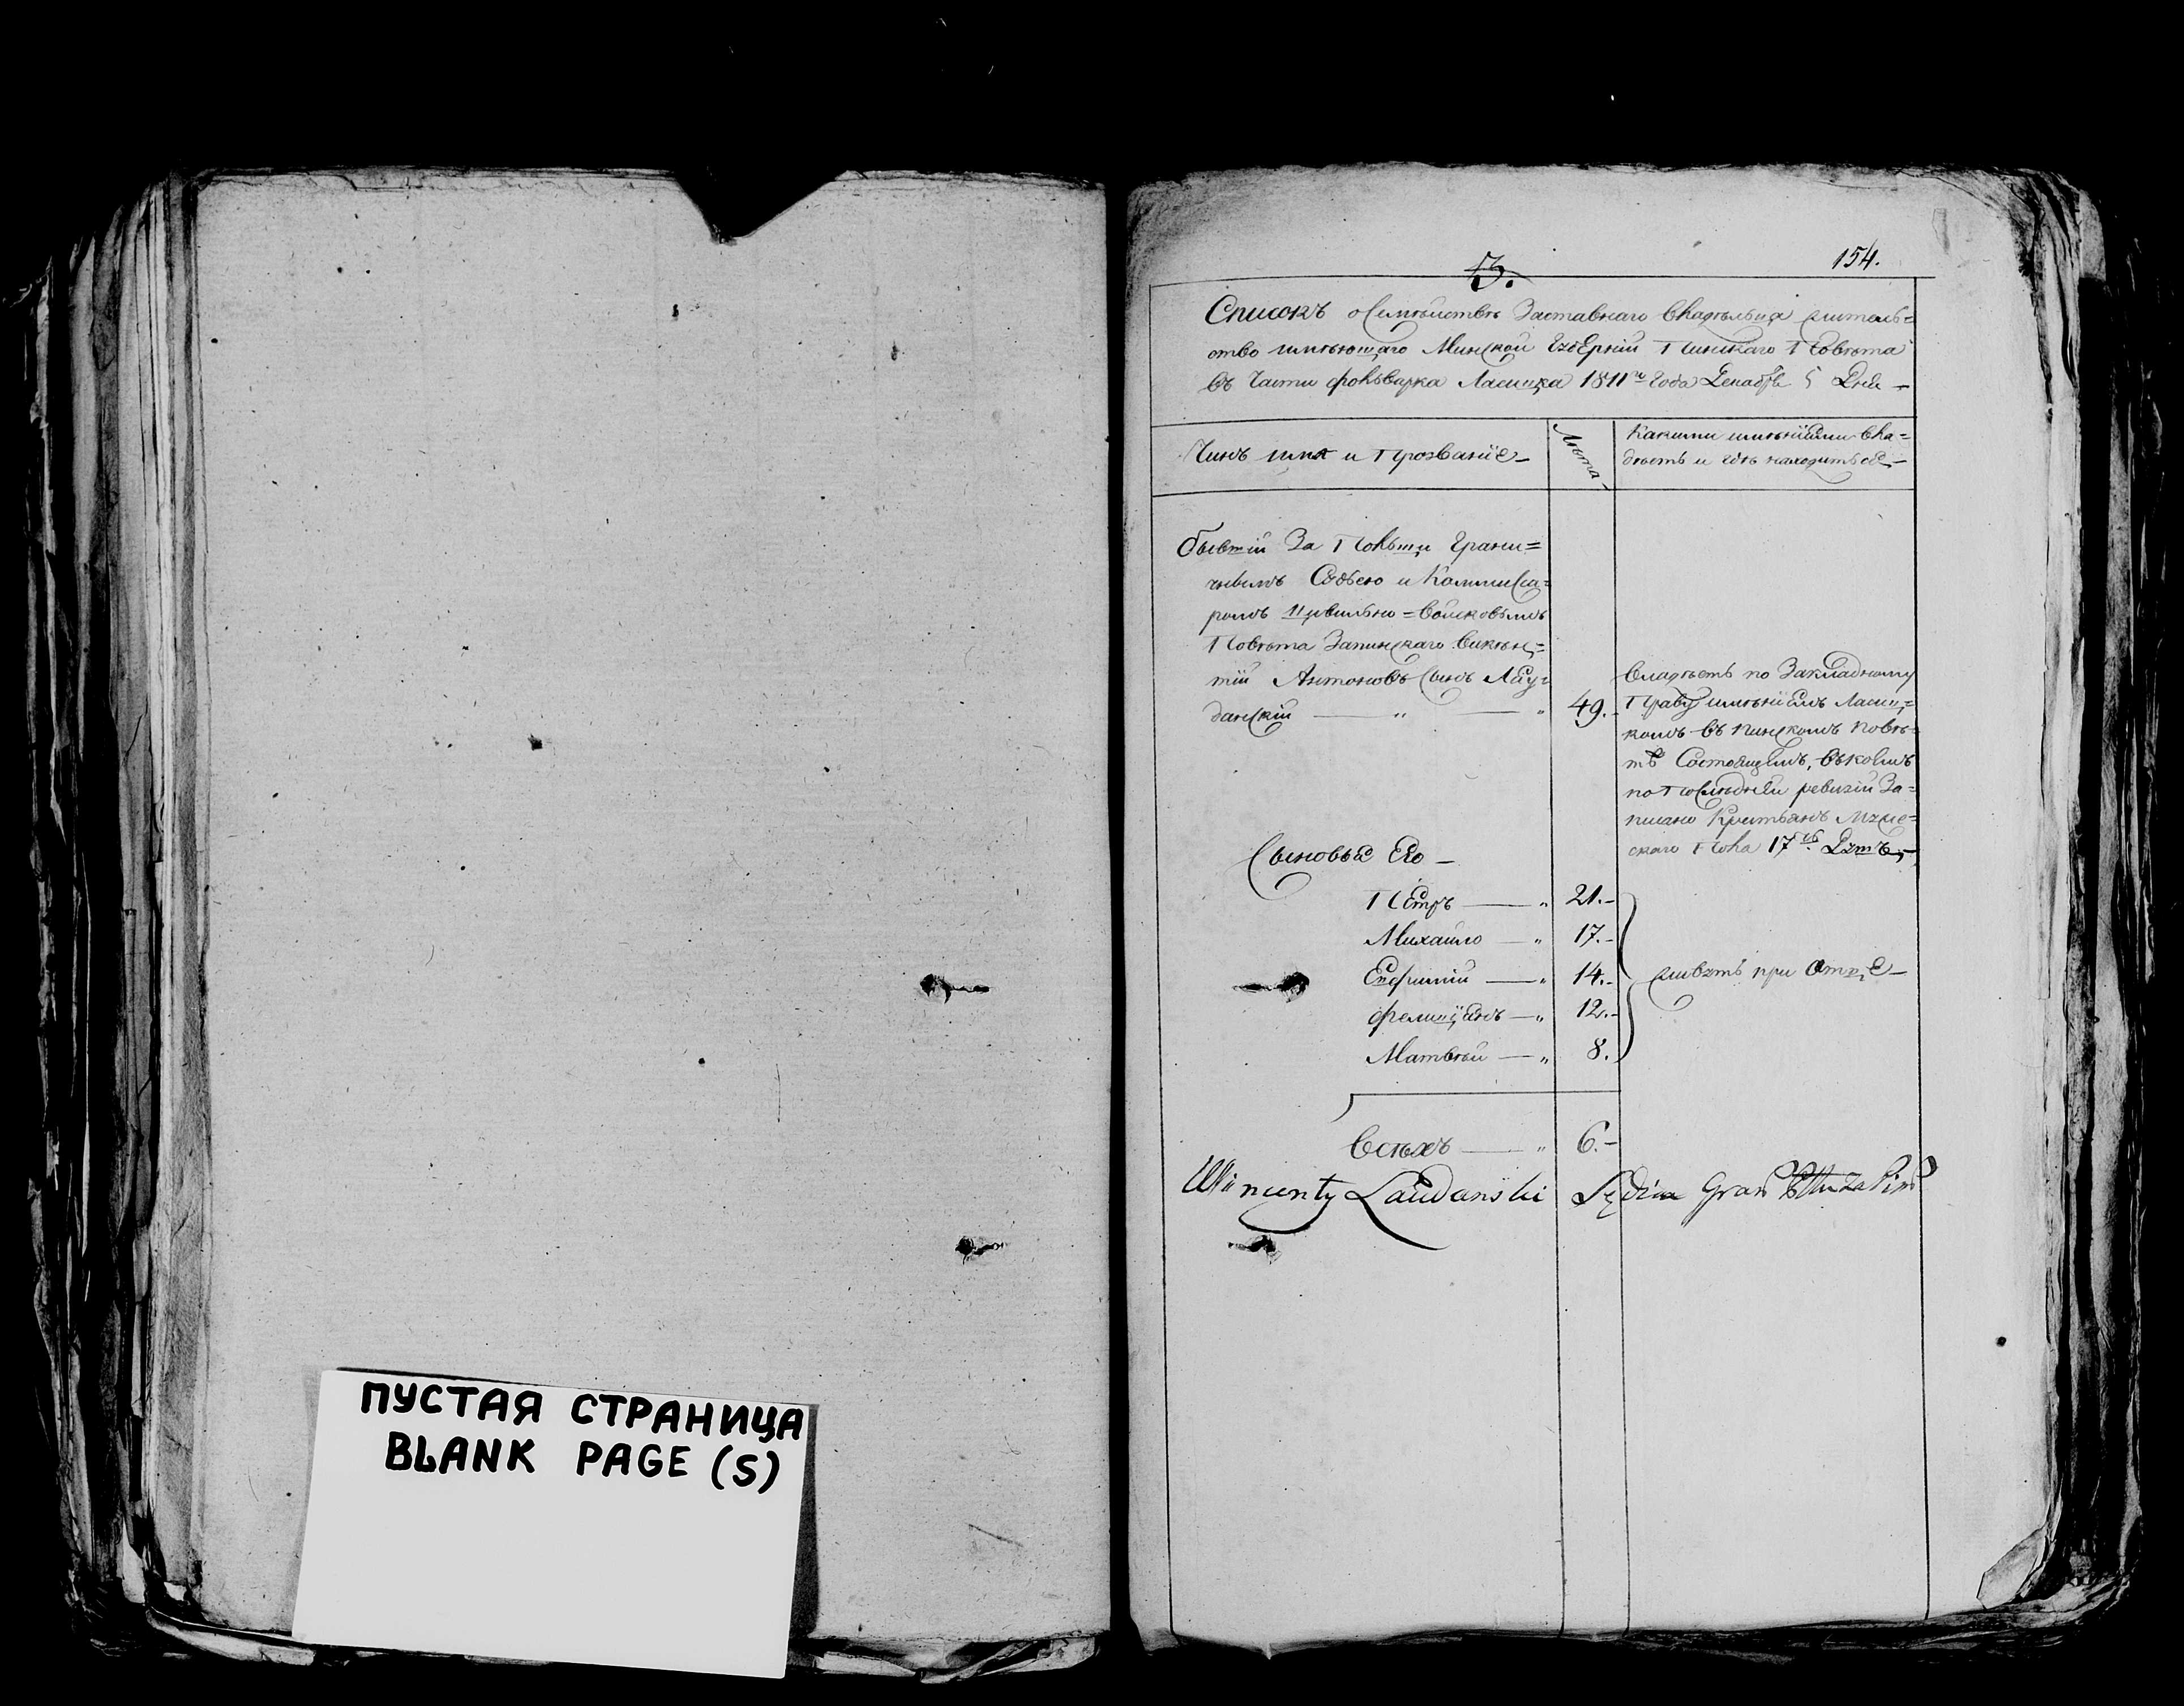 ПУСТАЯ СТРАНИЦА
BLANK PAGE (S)
154.
Списокъ о Семѣйствѣ Заставнаго владѣльца житель=
ство имѣющаго Минской Губерній Пинскаго Повѣта
въ Части фольварка Ласицка 1811го Года Декабря 5 Дня —
Чинъ имя и Прозваніе —
Лѣта
Какими имѣніями вла=
дѣетъ и гдѣ находитьсе —
бывшій За Польши Грани=
чнымъ Судьею и Коммиса=
ромъ Цивильно = Войсковымъ
Повѣта Запинскаго Викен=
тій Антоновъ Сынъ Лау=
данскій — " — " 49. —
Владѣетъ по Закладному
Праву имѣніемъ Ласиц=
комъ въ Пинскомъ Повѣ=
тѣ Состоящемъ, въ коемъ
по Послѣдней ревизіи За=
писано Крестьянъ Муже=
скаго Пола 17ть Душъ, —
Сыновья Его —
Петръ — " 21. —
Михайло — " 17. —
14. —
Фелиціянъ — " 12. —
Матвѣй — " 8.
живутъ при Отце —
Всѣхъ — " 6. —
Wincenty Laudański Sędzia Gran Zapiń